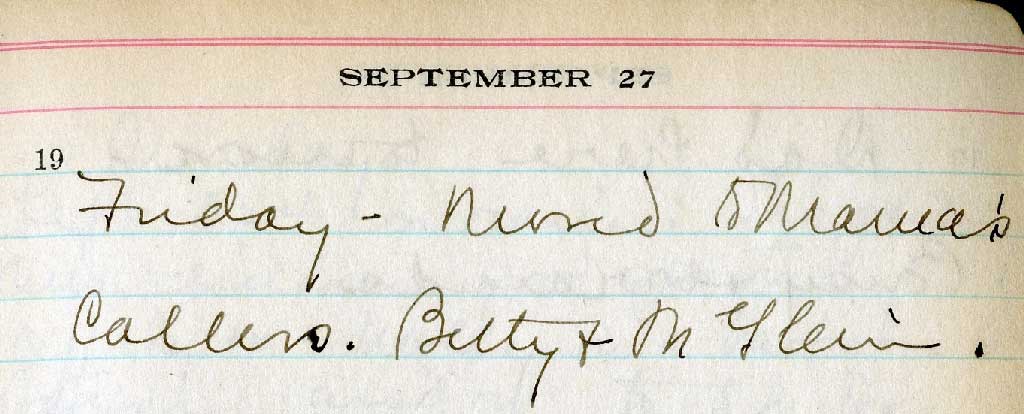 SEPTEMBER 27
19
Friday - Moved to Mama's
Callers. Betty & M